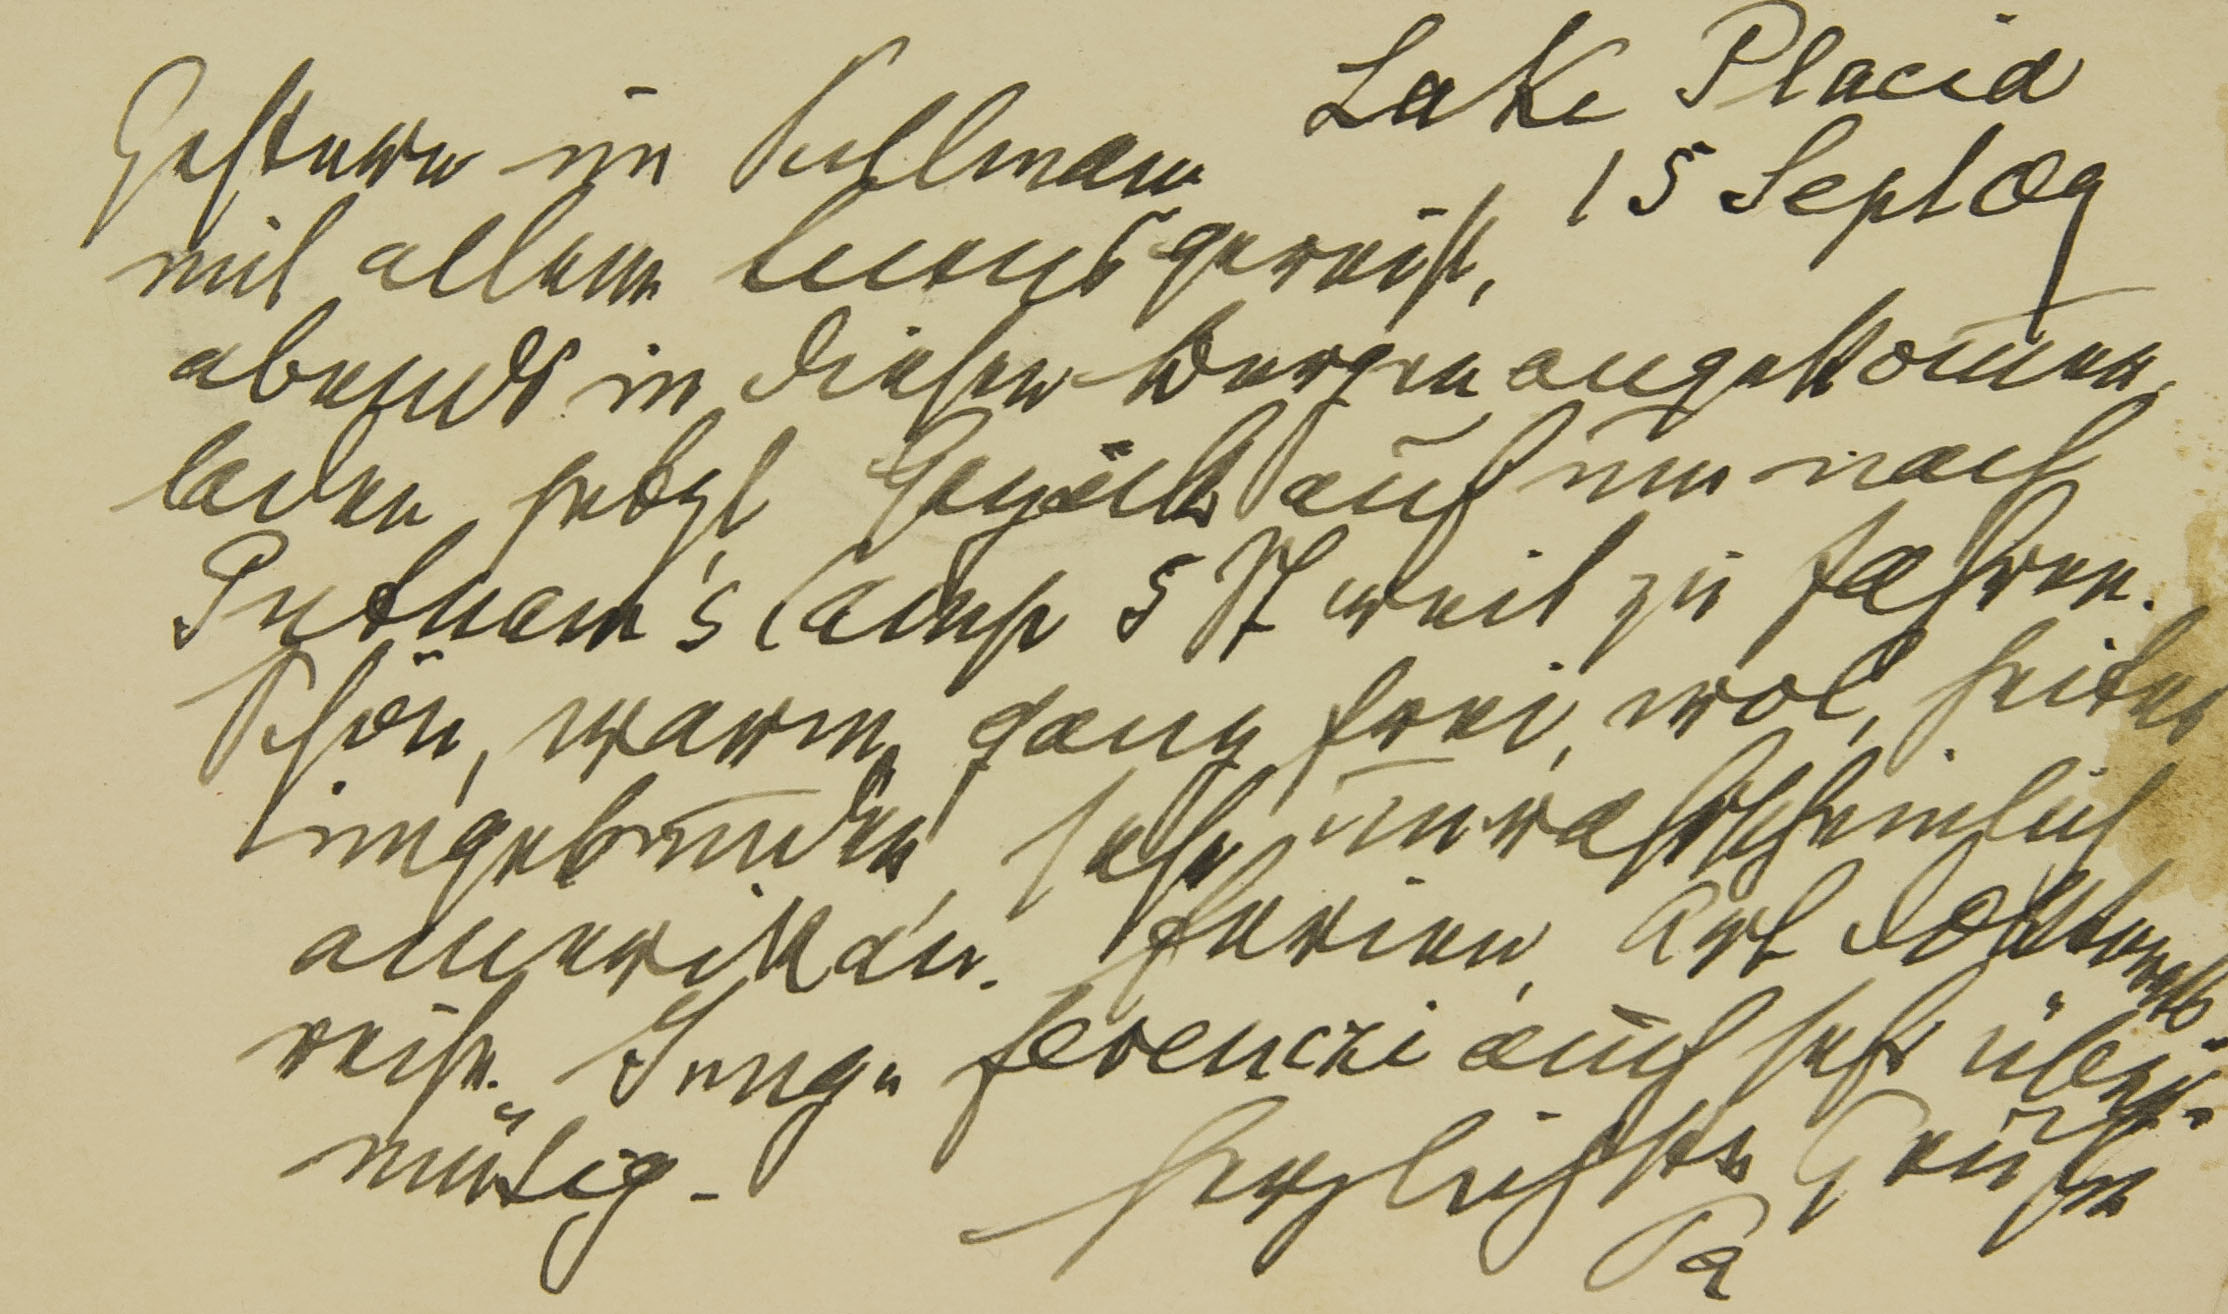 Lake Placid
15 Sept 09
Gestern im Pullman
mit allem Luxus gereist,
abends in diesen Bergen angekommen,
laden jetzt Gepäck auf um nach
Putnam's Camp 5 St weit zu fahren.
Schön, warm, ganz frei, wol, heiter
ungebunden, sehr unwahrscheinlich
amerikan. Ferien, Art
reise. Jung u Ferenczi auch sehr über-
mütig -
herzlichste Grüße
Pa